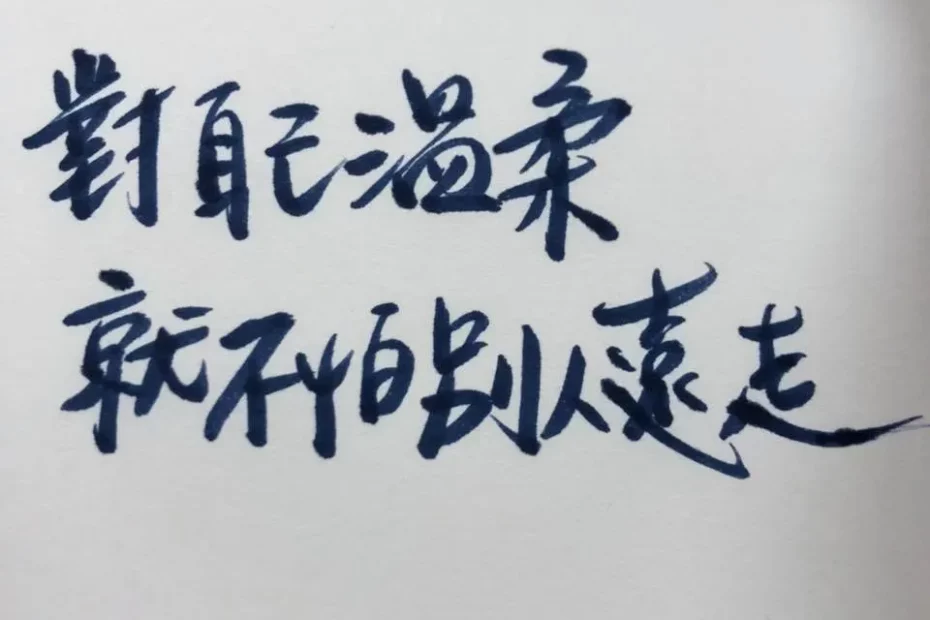 對自己溫柔
就不怕別人遠走